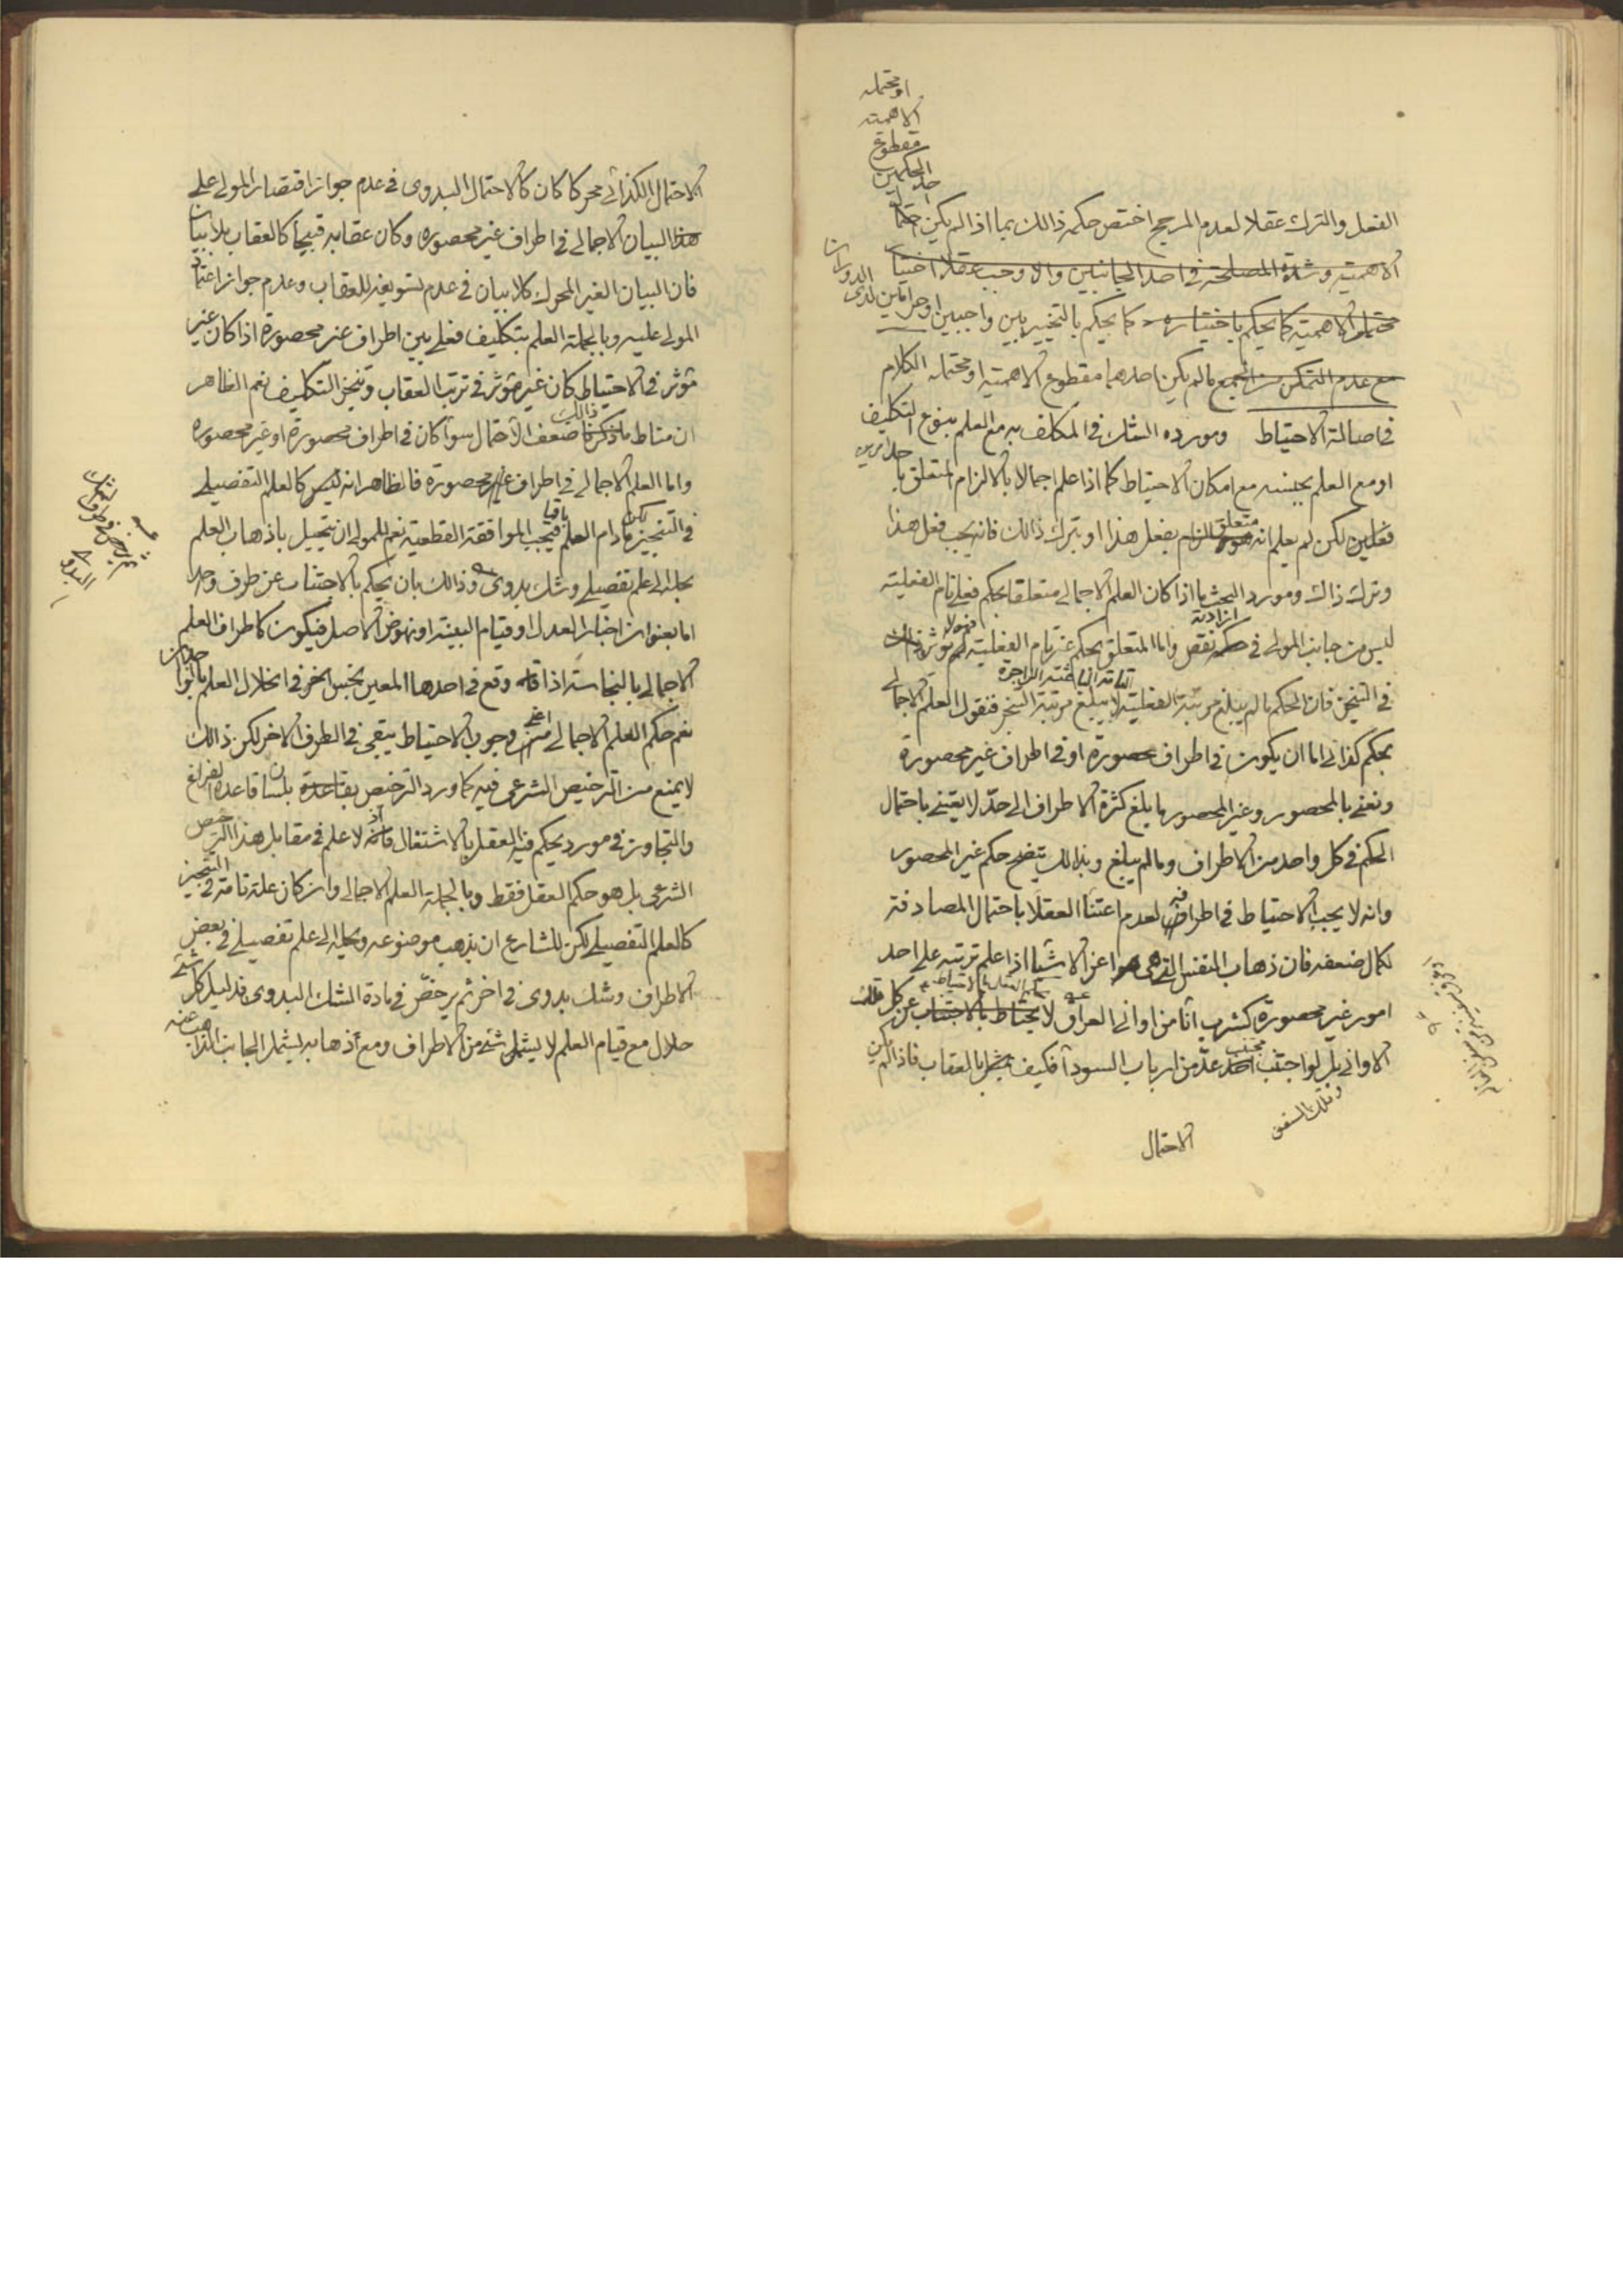 او محتمله
الاهمية
مقطوع
الحكمين
احد
الفعل والترك عقلا لعدم المرجح اختص حكمه ذالك بما اذا لم يكن احتما
الاهمية وشدة المصلحة في احد الجانبين والا وجب عقلا اختيا
محتمل الاهمية كما يحكم باختياره كما يحكم بالتخيير بين واجبين او حرامين لدى الدوران
مع عدم التمكن من الجمع ما لم يكن احدهما مقطوع الاهمية او محتمله الكلام
في اصالة الاحتياط ومورده الشك في المكلف به مع العلم بنوع التكليف
او مع العلم بجنسه مع امكان الاحتياط كما اذا علم اجمالا بالالزام المتعلق با
حد امرين
فعلين لكن لم يعلم انه متعلق بفعل هذا او بترك ذالك فانه يجب فعل هذا
وترك ذاك ومورد البحث ما اذا كان العلم الاجمالي متعلقا بحكم فعلي تام الفعلية
ليس من جانب المولى في ارادته نقص واما المتعلق بحكم غير تام الفعلية فهو لا يؤثر
في التنجيز فان الحكم ما لم يبلغ مرتبة الفعلية لا يبلغ مرتبة التنجز فنقول العلم الاجمالي
التامة الباعثة الزاجرة
بحكم كذائي اما ان يكون في اطراف محصورة او في اطراف غير محصورة
ونعني بالمحصور وغير المحصور ما بلغ كثرة الاطراف الى حد لا يعتني باحتمال
الحكم في كل واحد من الاطراف وما لم يبلغ وبذالك يتضح حكم غير المحصور
وانه لا يجب الاحتياط في اطرافه لعدم اعتنا العقلا باحتمال المصادفة
لكمال ضعفه فان ذهاب النفس التي هي اعز الاشيا اذا علم ترتبه على احد
امور غير محصورة كشرب آنا من اواني العراق لا يحتاط بالاجتناب عن كل تلك
الاواني بل لو اجتنب مجتنب عد من ارباب السودآ فكيف بالعقاب فاذا لم يكن
الاحتمال
الاحتمال الكذائي محركا كان كالاحتمال البدوي في عدم جواز اقتصار المولى على
هذا البيان الاجمالي في اطراف غير محصوره وكان عقابه قبيحا كالعقاب بلا بيان
فان البيان الغير المحرك كلا بيان في عدم تسويغه للعقاب وعدم جواز اعتماد
المولى عليه وبالجملة العلم بتكليف فعلي بين اطراف غير محصورة اذا كان غير
مؤثر في الاحتياط كان غير مؤثر في ترتب العقاب وتنجز التكليف نعم الظاهر
ان مناط ذالك ضعف الاحتمال سوآ كان في اطراف محصورة او غير محصوره
واما العلم الاجمالي في اطراف محصورة فالظاهر انه ليس كالعلم التفصيلي
في التنجيز لكن مادام العلم باقيا فتجب الموافقة القطعية نعم للمولى ان يتحيل باذهاب العلم
بجعله الى علم تفصيلي وشك بدوى وذالك بان يحكم بالاجتناب عن طرف واحد
اما بعنوان اخبار العدل او قيام البينة او نهوض الاصل فيكون كاطراف العلم
الاجمالي بالنجاسة اذا وقع في احدها المعين نجس اخر في انحلال العلم
نعم حكم العلم الاجمالي اعني وجوب الاحتياط يبقى في الطرف الاخر لكن ذالك
لا يمنع من الترخيص الشرعي فيه كما ورد الترخيص بلسان قاعدة الفراغ
والتجاوز في مورد يحكم فيه العقل بالاشتغال اذ لا علم في مقابل هذا الترخيص
الشرعي بل هو حكم العقل فقط وبالجملة العلم الاجمالي وان كان علة تامة في التنجيز
كالعلم التفصيلي لكن للشارع ان يذهب موضوعه ويحيله الى علم تفصيلي في بعض
الاطراف وشك بدوى في اخر ثم يرخص في مادة الشك البدوى فدليل كل شئ
حلال مع قيام العلم لا يشمل شئ من الاطراف ومع اذهابه يشمل الجانب الذاهب عنه